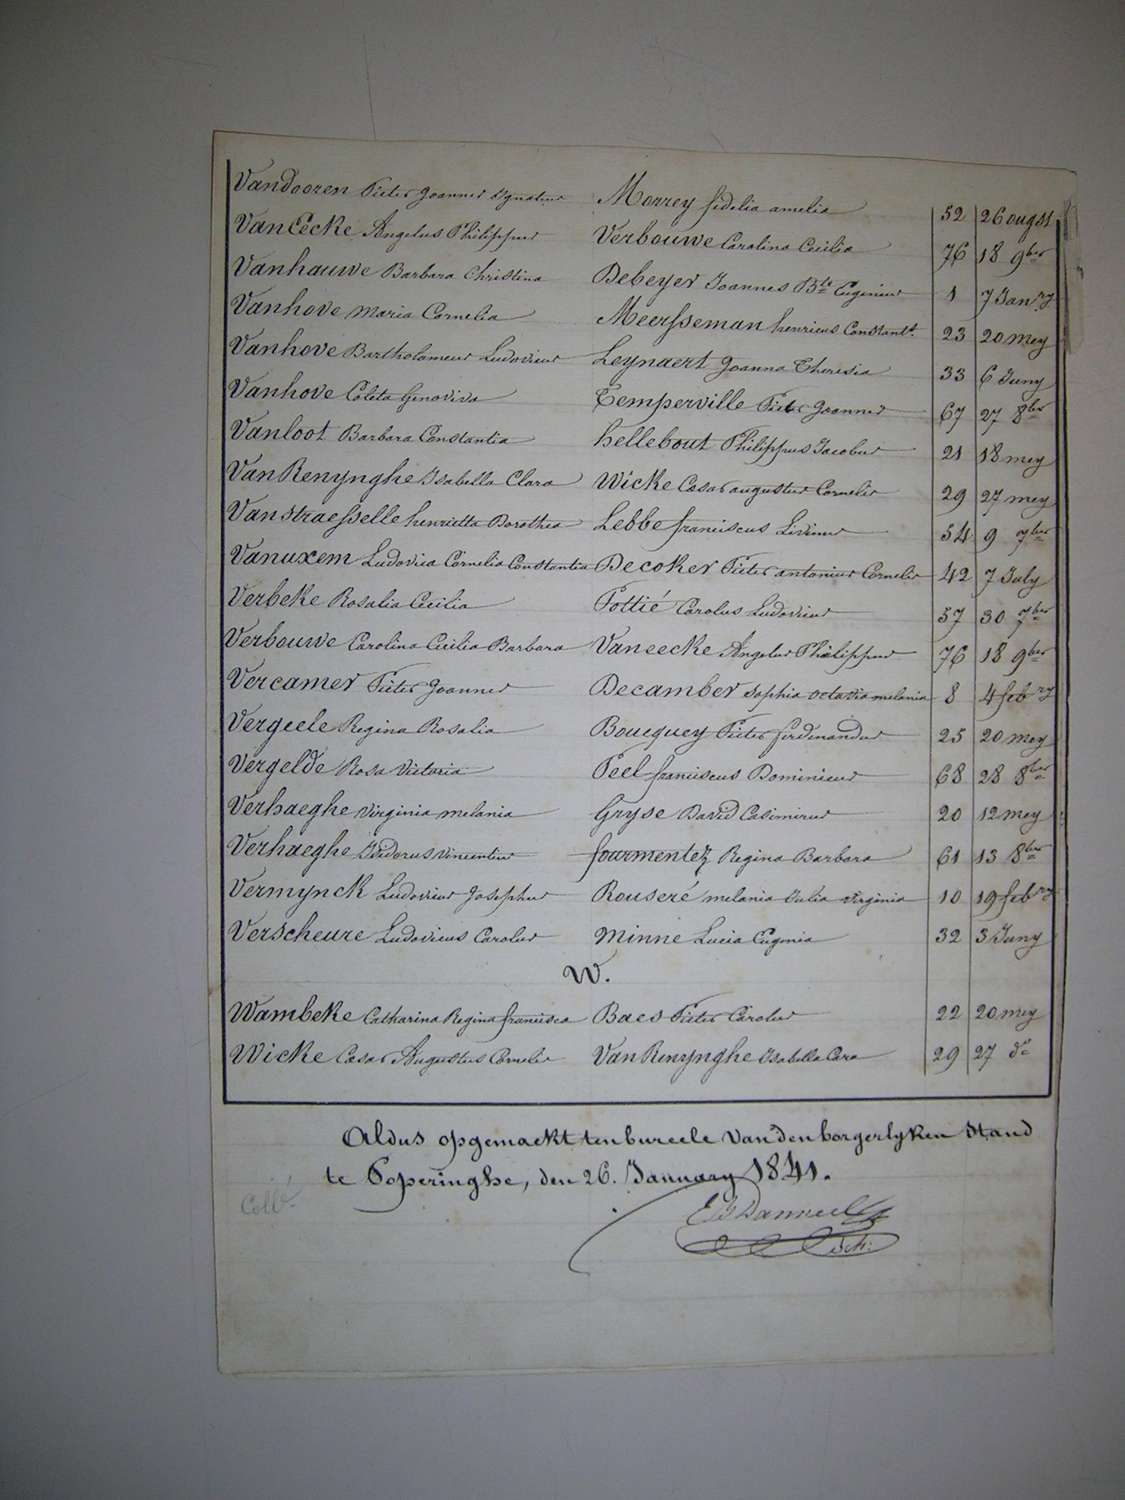 Vandooren Pieter Joannes Ignatius Morrey fidelia amelia 52 26 ougst
Van Eecke Angelus Philippus Verbouwe Carolina Cecilia 76 18 9ber
Vanhauwe Barbara Christina Debeyer Joannes Bte Eugenius 1 7 Janry
Vanhove Maria Cornelia Meersseman henricus Constantt. 23 20 mey
Vanhove Bartholomeus Ludovicus Leynaert Joanna Theresia 33 6 Juny
Vanhove Coleta Genoviva Temperville Pieter Joannes 67 27 8ber
Vanloot Barbara Constantia hellebout Philippus Jacobus 21 18 mey
Van Renynghe Isabella Clara Wicke Cesar augustus Cornelis 29 27 mey
Vanstraesselle henrietta Dorothea Lebbe franciscus Livinus 54 9 7ber
Vanuxem Ludovica Cornelia Constantia Decoker Pieter antonius Cornelis 42 7 July
Verbeke Rosalia Cecilia Pottié Carolus Ludovicus 57 30 7ber
Verbouwe Carolina Cecilia Barbara Vaneecke Angelus Philippus 76 18 9ber
Vercamer Pieter Joannes Decamber Sophia octavia melania 8 4 febry
Vergeele Regina Rosalia Boucquey Pieter ferdinandus 25 20 mey
Vergelde Rosa Victoria Peel franciscus Dominicus 68 28 8ber
Verhaeghe Virginia melania Gryse David Casimirus 20 12 mey
Verhaeghe Isidorus Vincentius fourmentez Regina Barbara 61 13 8ber
Vermynck Ludovicus Josephus Rouseré melania Julia Virginia 10 19 febry
Verscheure Ludovicus Carolus Minne Lucia Eugenia 32 3 Juny
W.
Wambeke Catharina Regina francisca Baes Pieter Carolus 22 20 mey
Wicke Cesar Augustus Cornelis Van Renynghe Isabella Cara 29 27 do
Aldus opgemaekt ten bureele van den borgerlyken Stand
te Poperinghe, den 26. January 1841.
Sch: